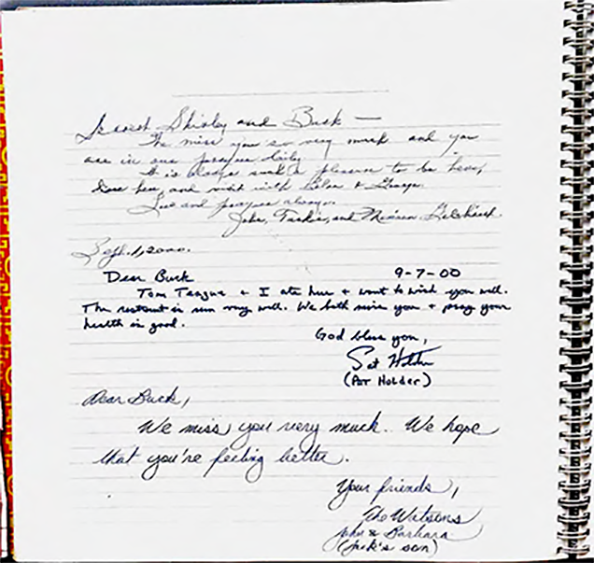 Dearest Shirley and Buck —
We miss you so very much and you
are in our prayers daily.
It is always such a pleasure to be here,
dine here, and visit with & George.
Love and prayers always,
John, and
Sept. 1, 2000.
Dear Buck 9-7-00
Tom Teague + I ate here + want to wish you well.
The restaurant is run very well. We both miss you + pray your
health is good.
God bless you,
Pat Holder
(Pat Holder)
Dear Buck,
We miss you very much. We hope
that you're feeling better.
Your friends,
The Watsons
John & Barbara
(Jack's son)